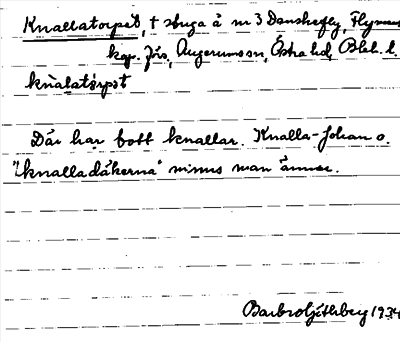 Knallatorpet, † stuga å nr 3 Danskefly, Flymens
kgr. Jös, Augerums sn, Östra hd, Blek. l.
knalatörpet
Där har bott knallar. Knalla-Johan o.
"knalladäkerna" minns man ännu.
1934